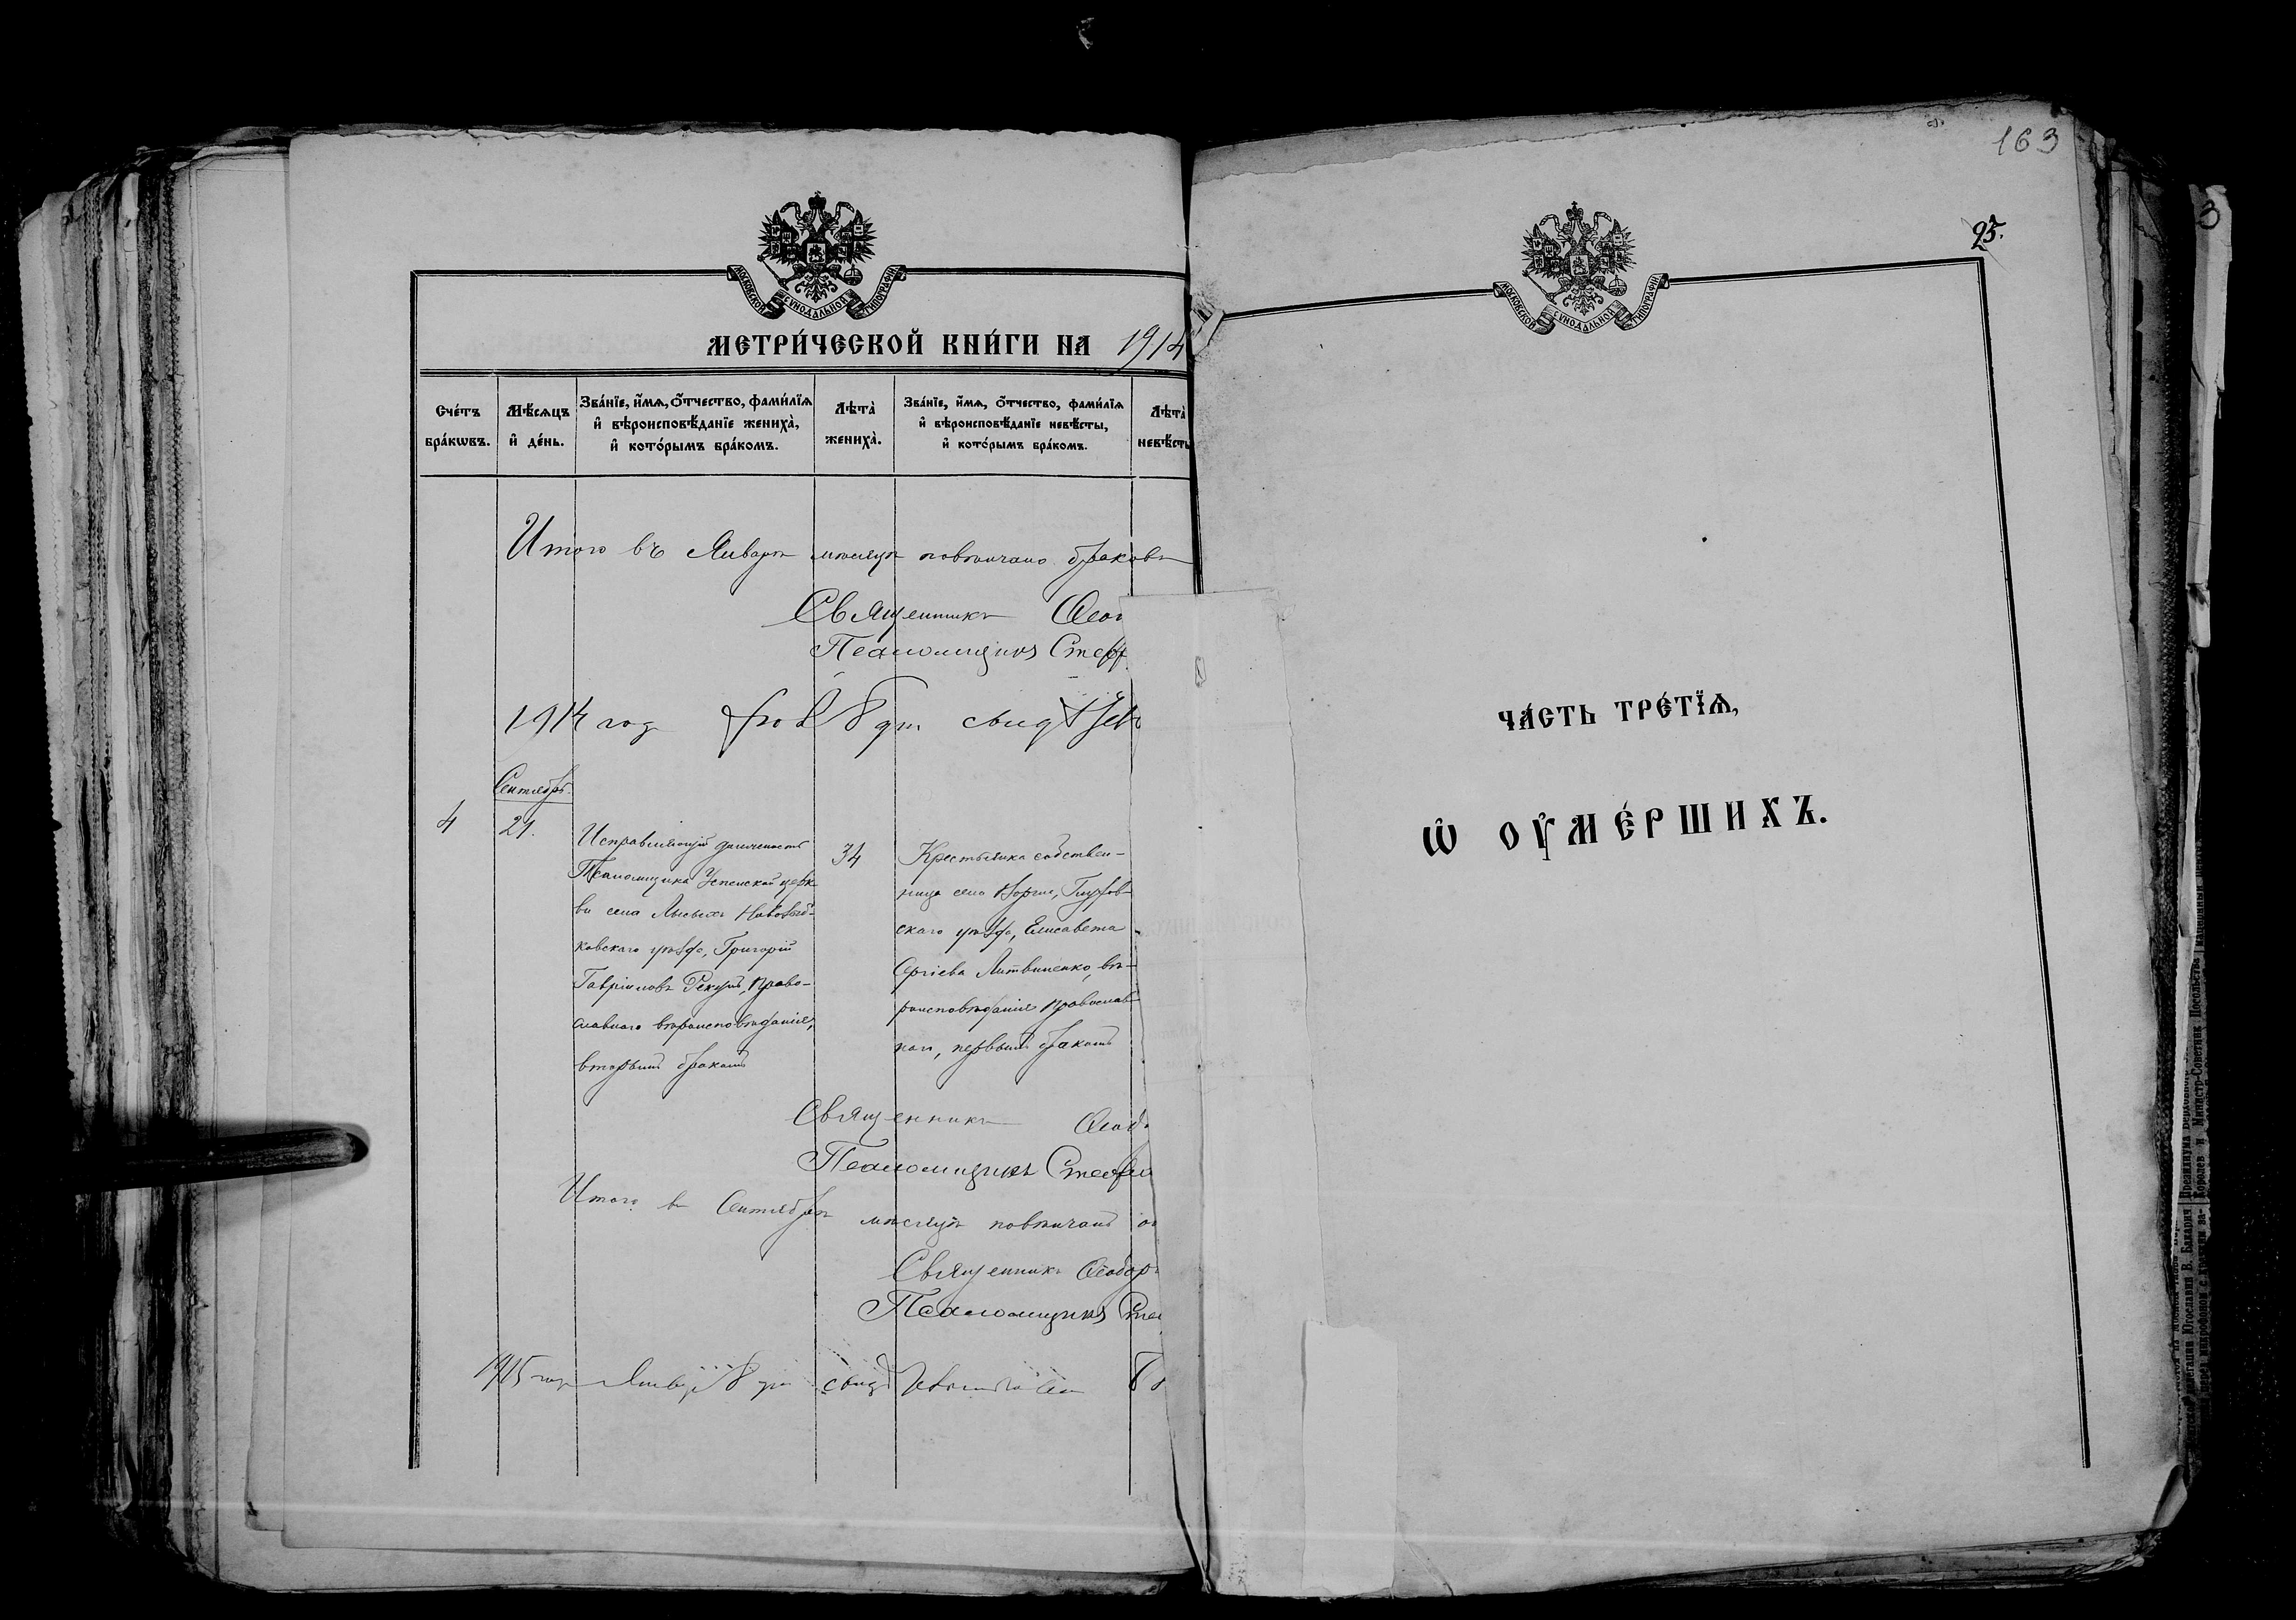 МОСКОВСКОЙ СѴНОДАЛЬНОЙ ТИПОГРАФІИ
МЕТРИ́ЧЕСКОЙ КНИ́ГИ НА 1914
Сче́тъ бра́кѡвъ.
Мѣ́сѧцъ и҆ де́нь.
Зва́нїе, и҆́мѧ, ѻ҆́тчество, фами́лїѧ
и҆ вѣроисповѣ́данїе жениха̀,
и҆ кото́рымъ бра́комъ.
Лѣта̀ жениха̀.
Зва́нїе, и҆́мѧ, ѻ҆́тчество, фами́лїѧ
и҆ вѣроисповѣ́данїе невѣ́сты,
и҆ кото́рымъ бра́комъ.
Лѣта̀
невѣ́сты
Итого въ Январѣ мѣсяцѣ повѣнчано браковъ
Священникъ Ѳео
Псаломщикъ Стеф
1914 год 8 дня свид
Сентябрь
4
21.
Исправляющій должность
Псаломщика Успенской церк
ви села Лысыхъ Новозыб-
ковскаго уѣзда, Григорій
Гавріиловъ, право-
славнаго вѣроисповѣданія,
вторымъ бракомъ
34
Крестьянка собствен-
ница села, Глухов-
скаго уѣзда, Елисавета
Сергіева Литвиненко, вѣ-
роисповѣданія православ
наго, первымъ бракомъ
Священникъ Ѳеод
Псаломщикъ Стефа
Итого въ Сентябрѣ мѣсяцѣ повѣнчанъ
Священникъ Ѳеодоръ
Псаломщикъ Сте
1915 год Январ 8 дня свид
163
25.
МОСКОВСКОЙ СѴНОДАЛЬНОЙ ТИПОГРАФІИ
ЧА́СТЬ ТРЕ́ТЇѦ,
Ѡ҆ ОУ҆МЕ́РШИХЪ.
3